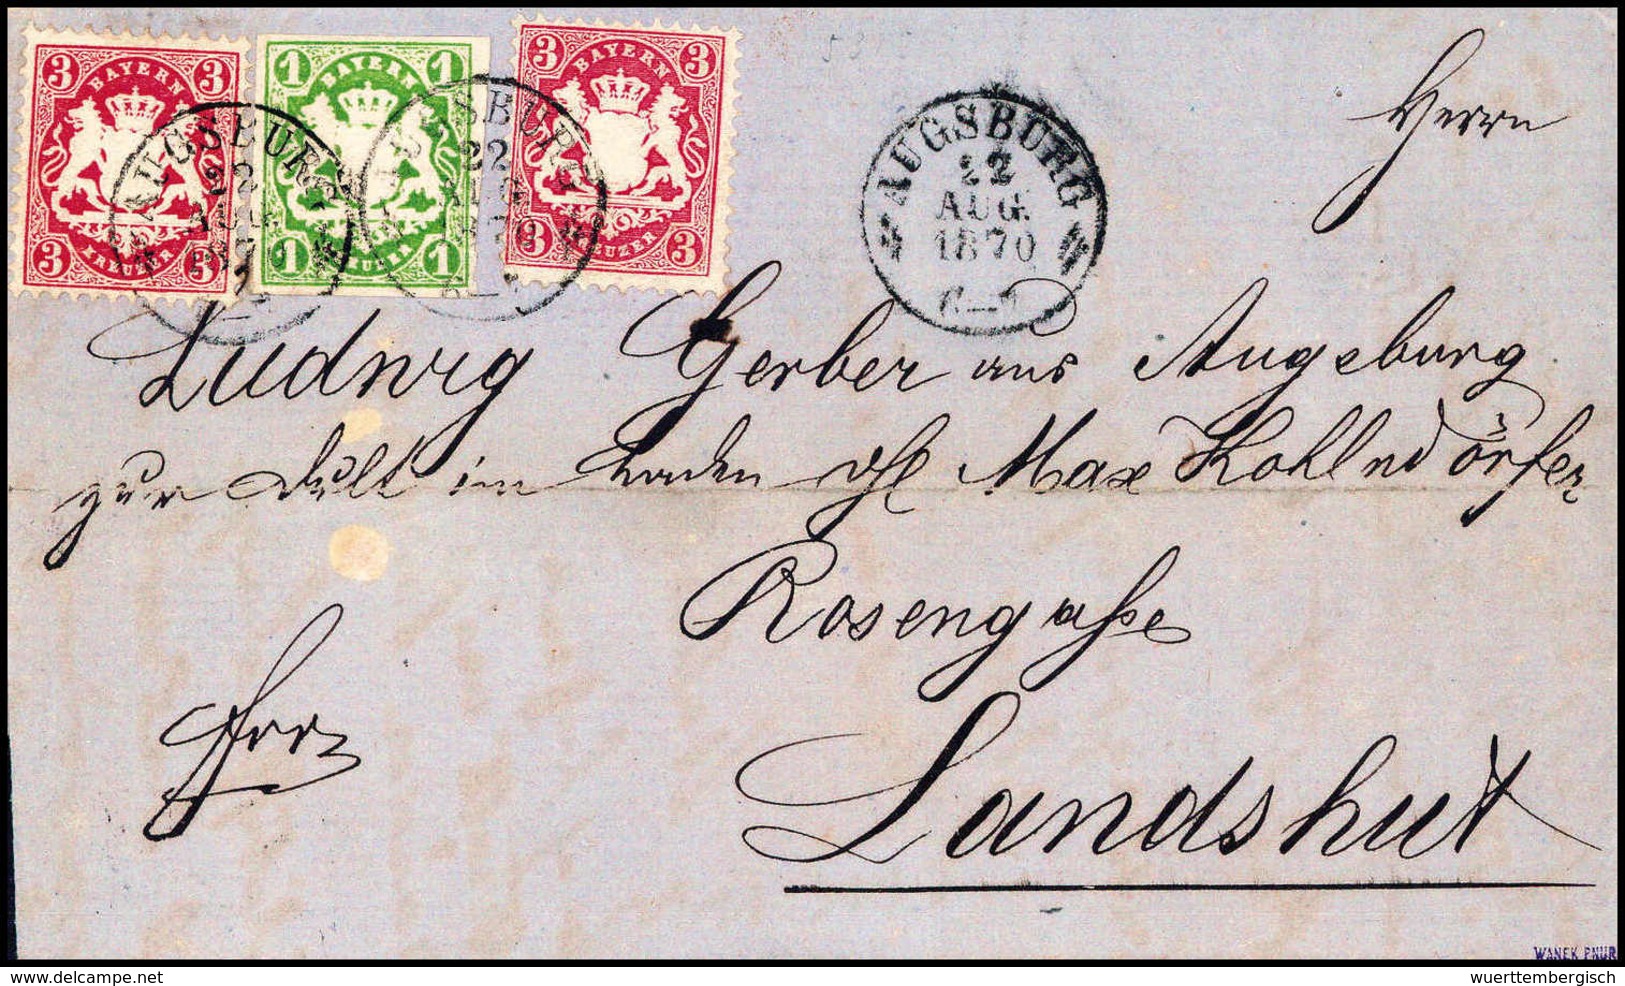 3 3
BAYERN
3 3
KREUZER
1 1
BAYERN
1 1
KREUZER
3 3
BAYERN
3 3
KREUZER
AUGSBURG
22
AUG
AUGSBURG
22
AUG
AUGSBURG
22
AUG.
1870
Herrn
Ludwig Gerber aus Augsburg
zur Dult im Laden des Max Kohlndörfer
Rosengaße
Landshut
WANEK
delcampe.net
wuerttembergisch